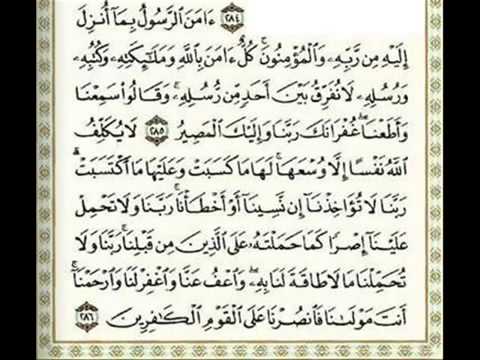 ٢٨٤ ءَامَنَ ٱلرَّسُولُ بِمَآ أُنزِلَ
إِلَيْهِ مِن رَّبِّهِۦ وَٱلْمُؤْمِنُونَ ۚ كُلٌّ ءَامَنَ بِٱللَّهِ وَمَلَٰٓئِكَتِهِۦ وَكُتُبِهِۦ
وَرُسُلِهِۦ لَا نُفَرِّقُ بَيْنَ أَحَدٍ مِّن رُّسُلِهِۦ ۚ وَقَالُوا۟ سَمِعْنَا
وَأَطَعْنَا ۖ غُفْرَانَكَ رَبَّنَا وَإِلَيْكَ ٱلْمَصِيرُ ٢٨٥ لَا يُكَلِّفُ
ٱللَّهُ نَفْسًا إِلَّا وُسْعَهَا ۚ لَهَا مَا كَسَبَتْ وَعَلَيْهَا مَا ٱكْتَسَبَتْ ۗ
رَبَّنَا لَا تُؤَاخِذْنَآ إِن نَّسِينَآ أَوْ أَخْطَأْنَا ۚ رَبَّنَا وَلَا تَحْمِلْ
عَلَيْنَآ إِصْرًا كَمَا حَمَلْتَهُۥ عَلَى ٱلَّذِينَ مِن قَبْلِنَا ۚ رَبَّنَا وَلَا
تُحَمِّلْنَا مَا لَا طَاقَةَ لَنَا بِهِۦ ۖ وَٱعْفُ عَنَّا وَٱغْفِرْ لَنَا وَٱرْحَمْنَآ ۚ
أَنتَ مَوْلَىٰنَا فَٱنصُرْنَا عَلَى ٱلْقَوْمِ ٱلْكَٰفِرِينَ ٢٨٦